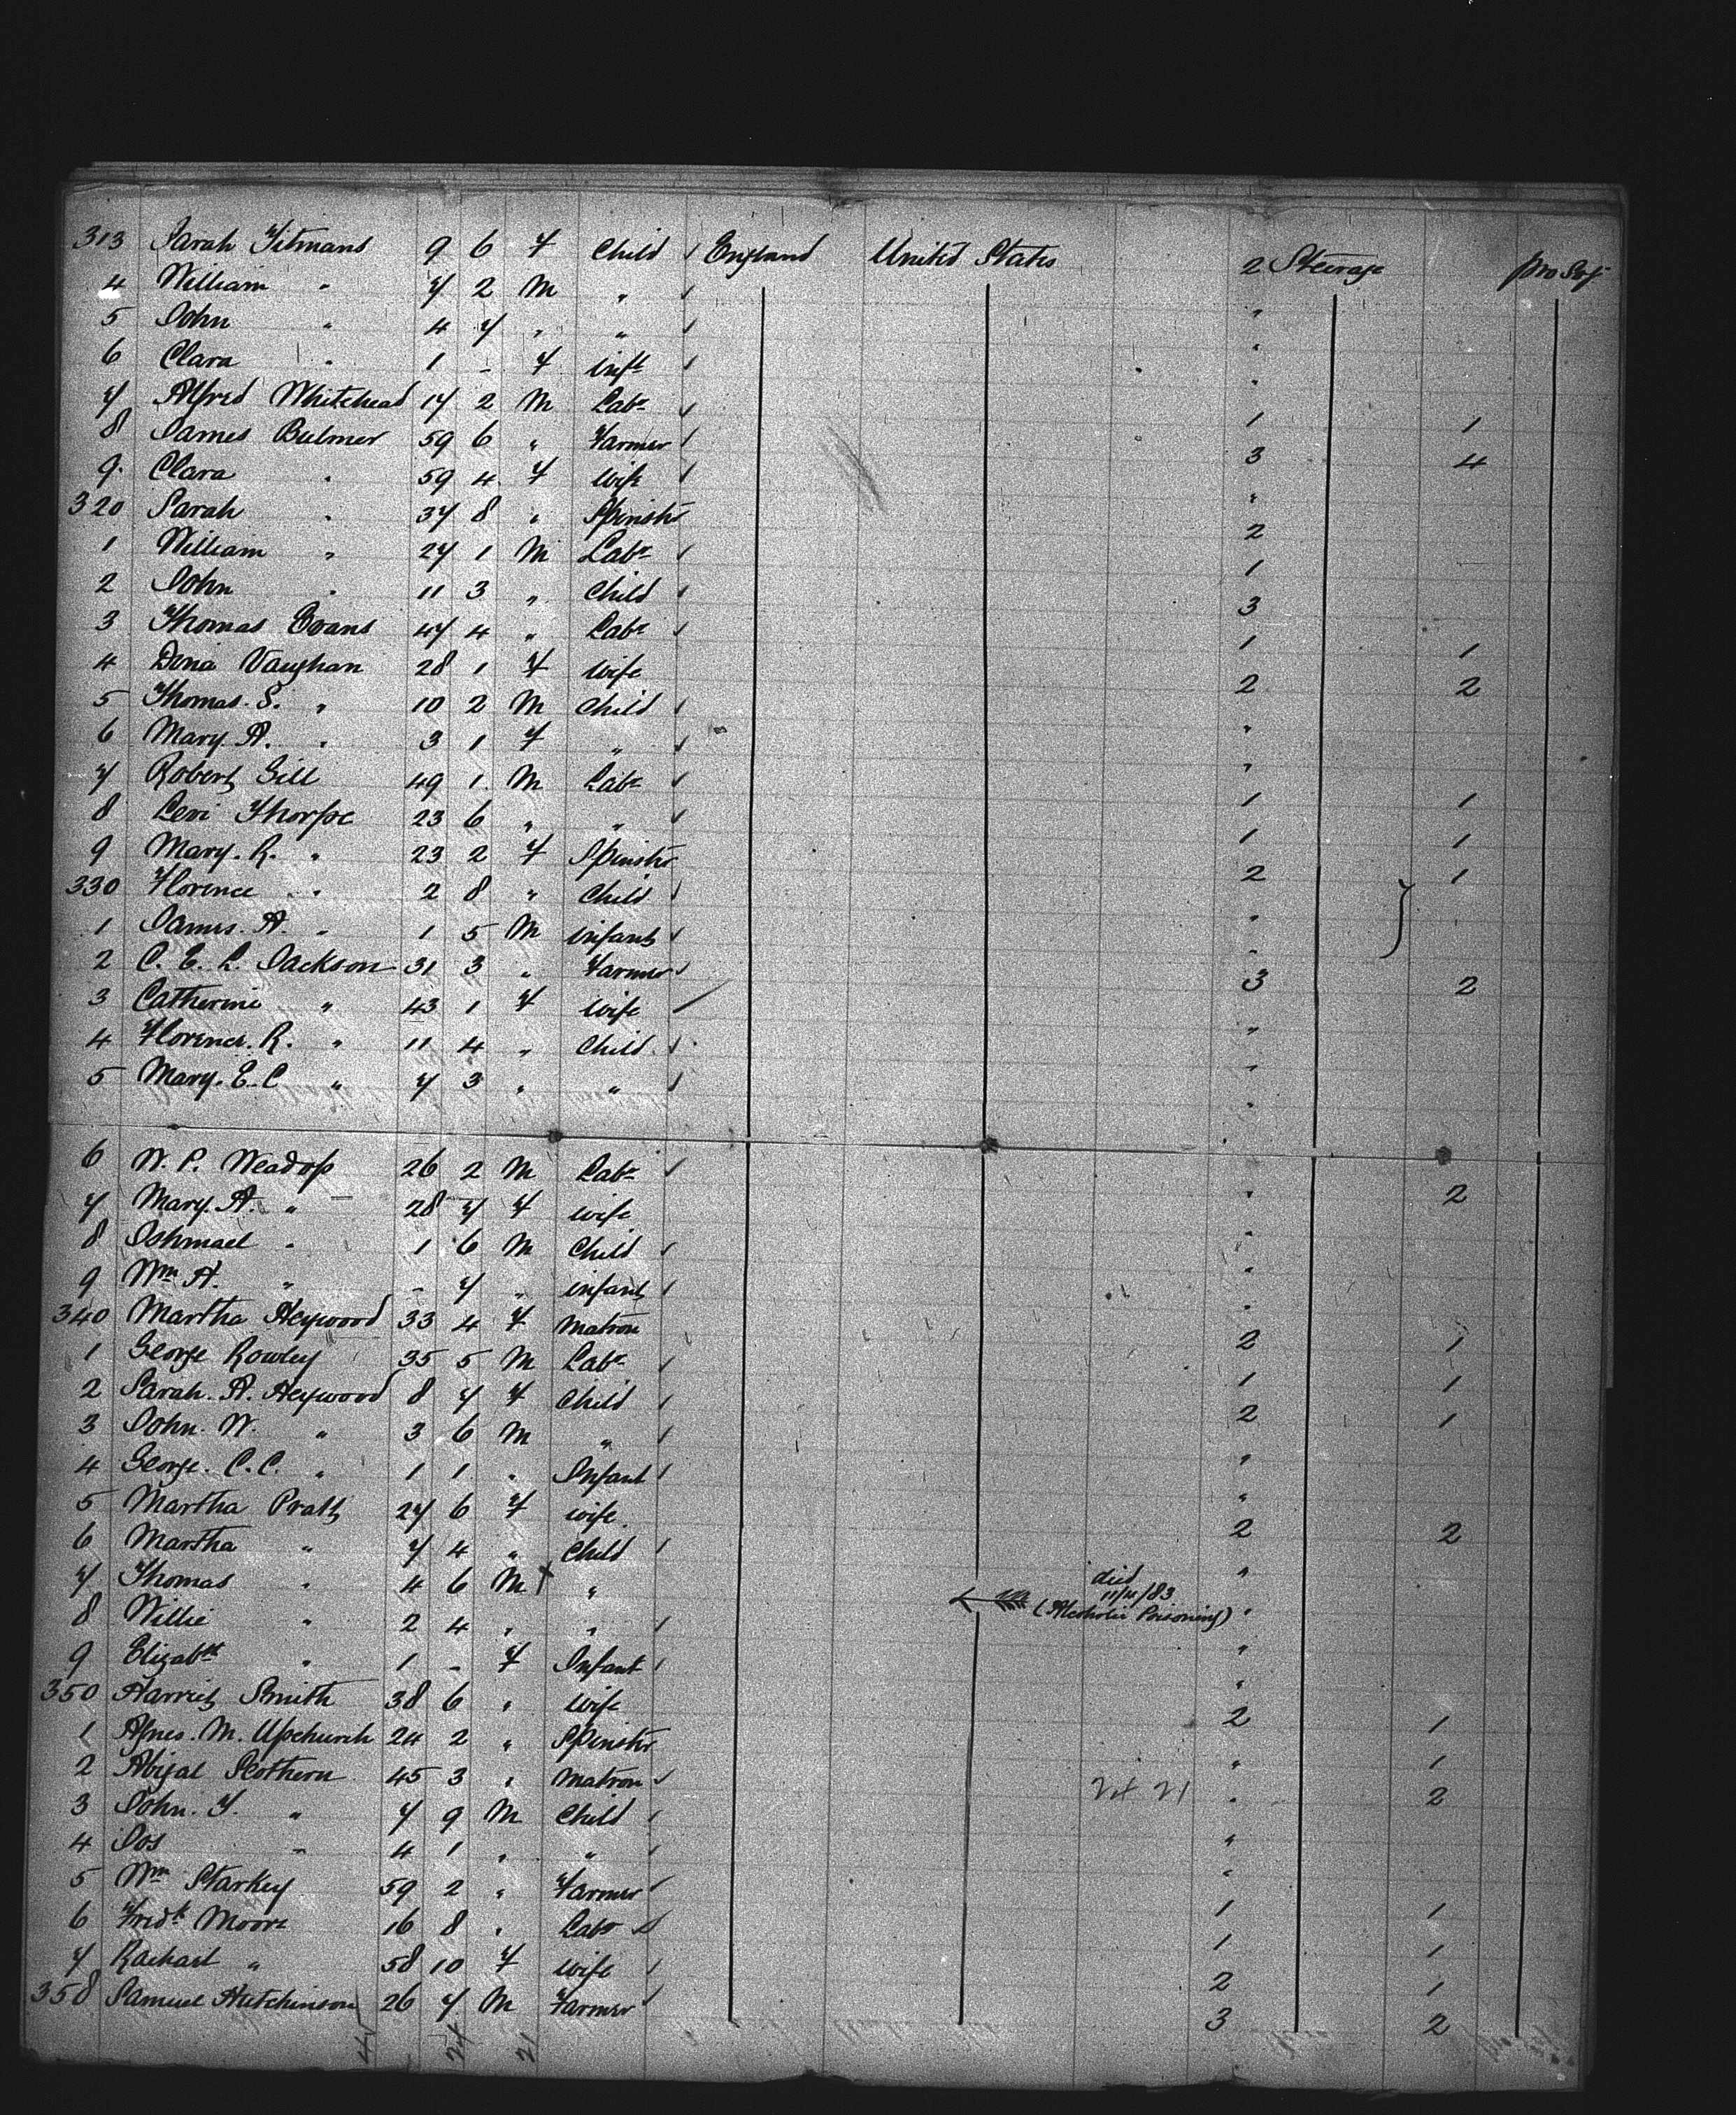 313 Sarah Yitmans 9 6 F Child England United States 2 Steerage
4 William " 7 2 M "
5 John " 4 7 " " "
6 Clara " 1 - F inft "
7 Alfred Whitehead 17 2 M Labr 1 1
8 James Bulmer 59 6 " Farmer 3 4
9 Clara " 59 4 F wife "
320 Sarah " 37 8 " Spinstr 2
1 William " 27 1 M Labr 1
2 John " 11 3 " Child 3
3 Thomas Evans 47 4 " Labr 1 1
4 Dina Vaughan 28 1 F wife 2 2
5 Thomas. S. " 10 2 M Child "
6 Mary. A. " 3 1 F " "
7 Robert Gill 49 1 M Labr 1 1
8 Levi Thorpe 23 6 " " 1 1
9 Mary. R. " 23 2 F Spinstr 2 1
330 Florence " 2 8 " Child "
1 James. A. " 1 5 M infant "
2 C. E. L. Jackson 31 3 " Farmer 3 2
3 Catherine " 43 1 F wife "
4 Florence. R. " 11 4 " Child "
5 Mary. E. C " 7 3 " " "
6 W. P. 26 2 M Labr " 2
7 Mary. A. " 28 7 F wife "
8 Ishmael " 1 6 M Child "
9 Wm A. " - 7 " infant "
340 Martha Heywood 33 4 F Matron 2 1
1 George Rowley 35 5 M Labr 1 1
2 Sarah. A. Heywood 8 7 F Child 2 1
3 John. W. " 3 6 M " "
4 George. C. C. " 1 1 " Infant "
5 Martha Pratt 27 6 F wife 2 2
6 Martha " 7 4 " Child "
7 Thomas " 4 6 M X " died 11/4/83 (Alcoholic Poisoning) "
8 Willie " 2 4 " " "
9 Elizabth " 1 - F Infant "
350 Harriet Smith 38 6 " wife 2 1
1 Agnes. M. Upchurch 24 2 " Spinstr " 1
2 Abigal Scothern 45 3 " Matron 24 21 " 2
3 John. T. " 7 9 M Child "
4 Jos " 4 1 " " "
5 Wm Starkey 59 2 " Farmer 1 1
6 Fredk Moore 16 8 " Labr 1 1
7 Rachael " 58 10 F wife 2 1
358 Samuel Hutchinson 26 7 M Farmer 3 2
45 24 21